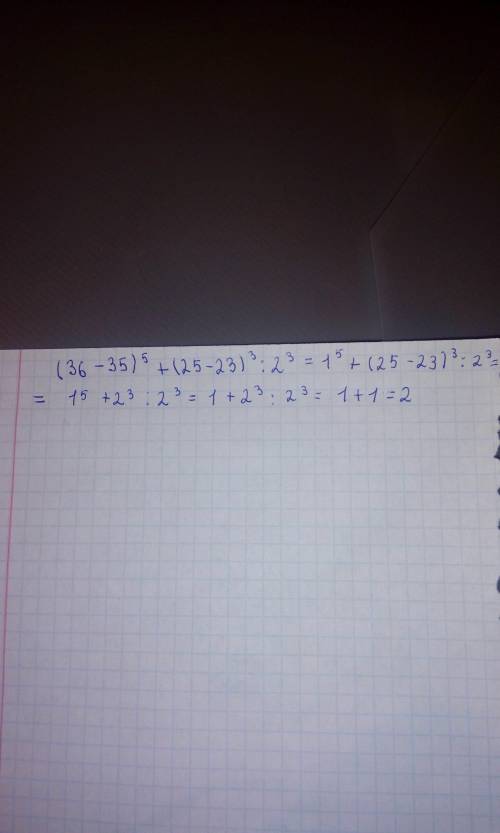 (36-35)⁵+(25-23)³:2³=1⁵+(25-23)³:2³=
= 1⁵+2³:2³=1+2³:2³=1+1=2